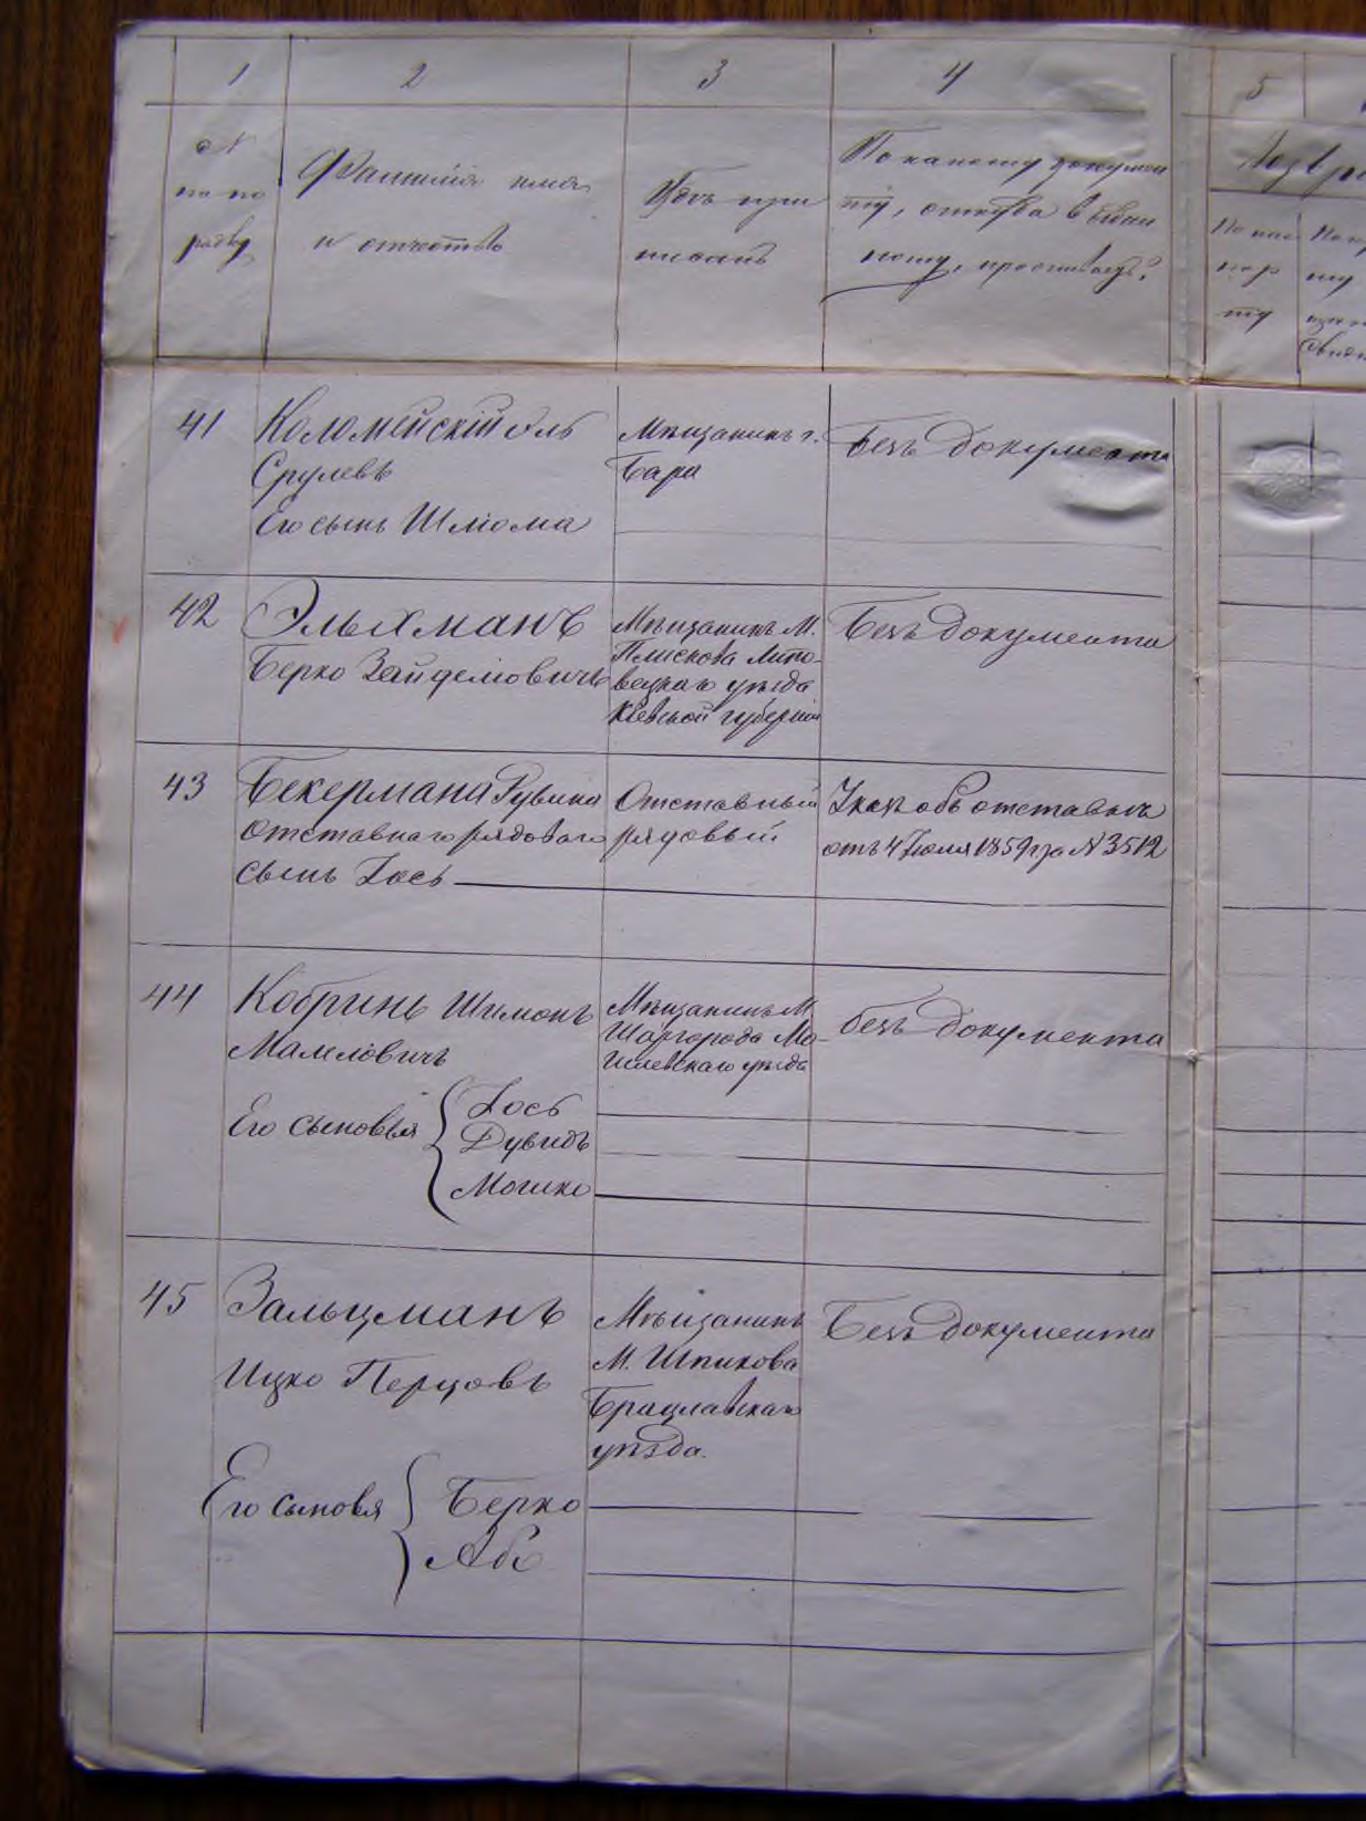 1 2 3 4 5
№ по по рядку
Фамилія имя и отчество
Гдѣ при писанъ
По какому докумен ту, откуда выдан ному, проживаетъ?
По пас пор ту
41
Коломейскій Эль
Срулевъ
Его сынъ Шліома
Мѣщанинъ г.
Бара
Безъ документа
42
Эльхманъ
Берко Зайделіовичъ
Мѣщанинъ М.
Плискова Липо-
вецкаго уѣзда
Кіевской губерніи
Безъ документа
43
Бекермана Рувина
Отставнаго рядоваго
сынъ Іось
Отставный
рядовый
Указъ объ отставкѣ
отъ 4 Іюля 1859 го № 3512
44
Кобринь Шимонъ
Мамловичъ
Его сыновья
Іось
Дувидъ
Мошко
Мѣщанинъ М.
Шаргорода Мо-
гилевскаго уѣзда
безъ документа
45
Зальцманъ
Ицко Перцовъ
Его сыновья
Берко
Аба
Мѣщанинъ
М. Шпикова
Брацлавскаго
уѣзда.
Безъ документа